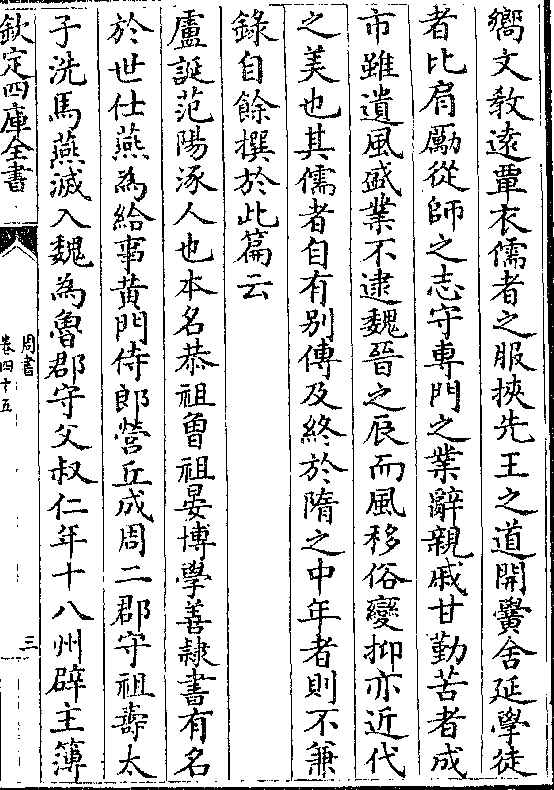 嚮文敎逺覃衣儒者之服挾先王之道開黌舎延學徒
者比肩勵從師之志守専門之業辭親戚甘勤苦者成
市雖遺風盛業不逮魏晉之辰而風移俗變抑亦近代
之美也其儒者自有别傳及終於隋之中年者則不兼
錄自餘撰於此篇云
盧誕范陽涿人也本名恭祖曾祖晏博學善隷書有名
於世仕燕為給事黄門侍郎營丘成周二郡守祖壽太
子洗馬燕滅入魏為魯郡守父叔仁年十八州辟主簿
欽定四庫全書
周書
卷四十五
三